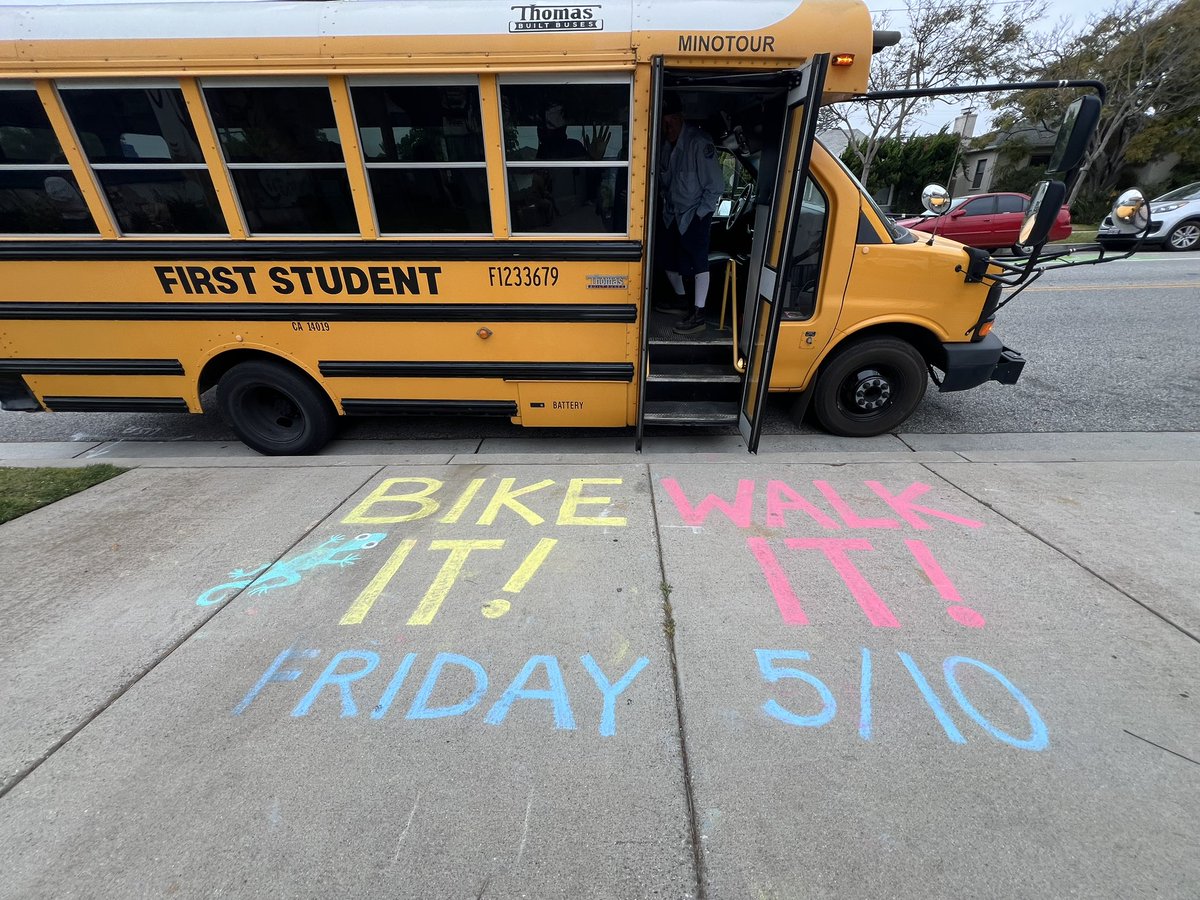 Thomas
BUILT BUSES
MINOTOUR
FIRST STUDENT
F1233679
Thomas
CA 14019
BATTERY
BIKE WALK
IT! IT!
FRIDAY 5/10